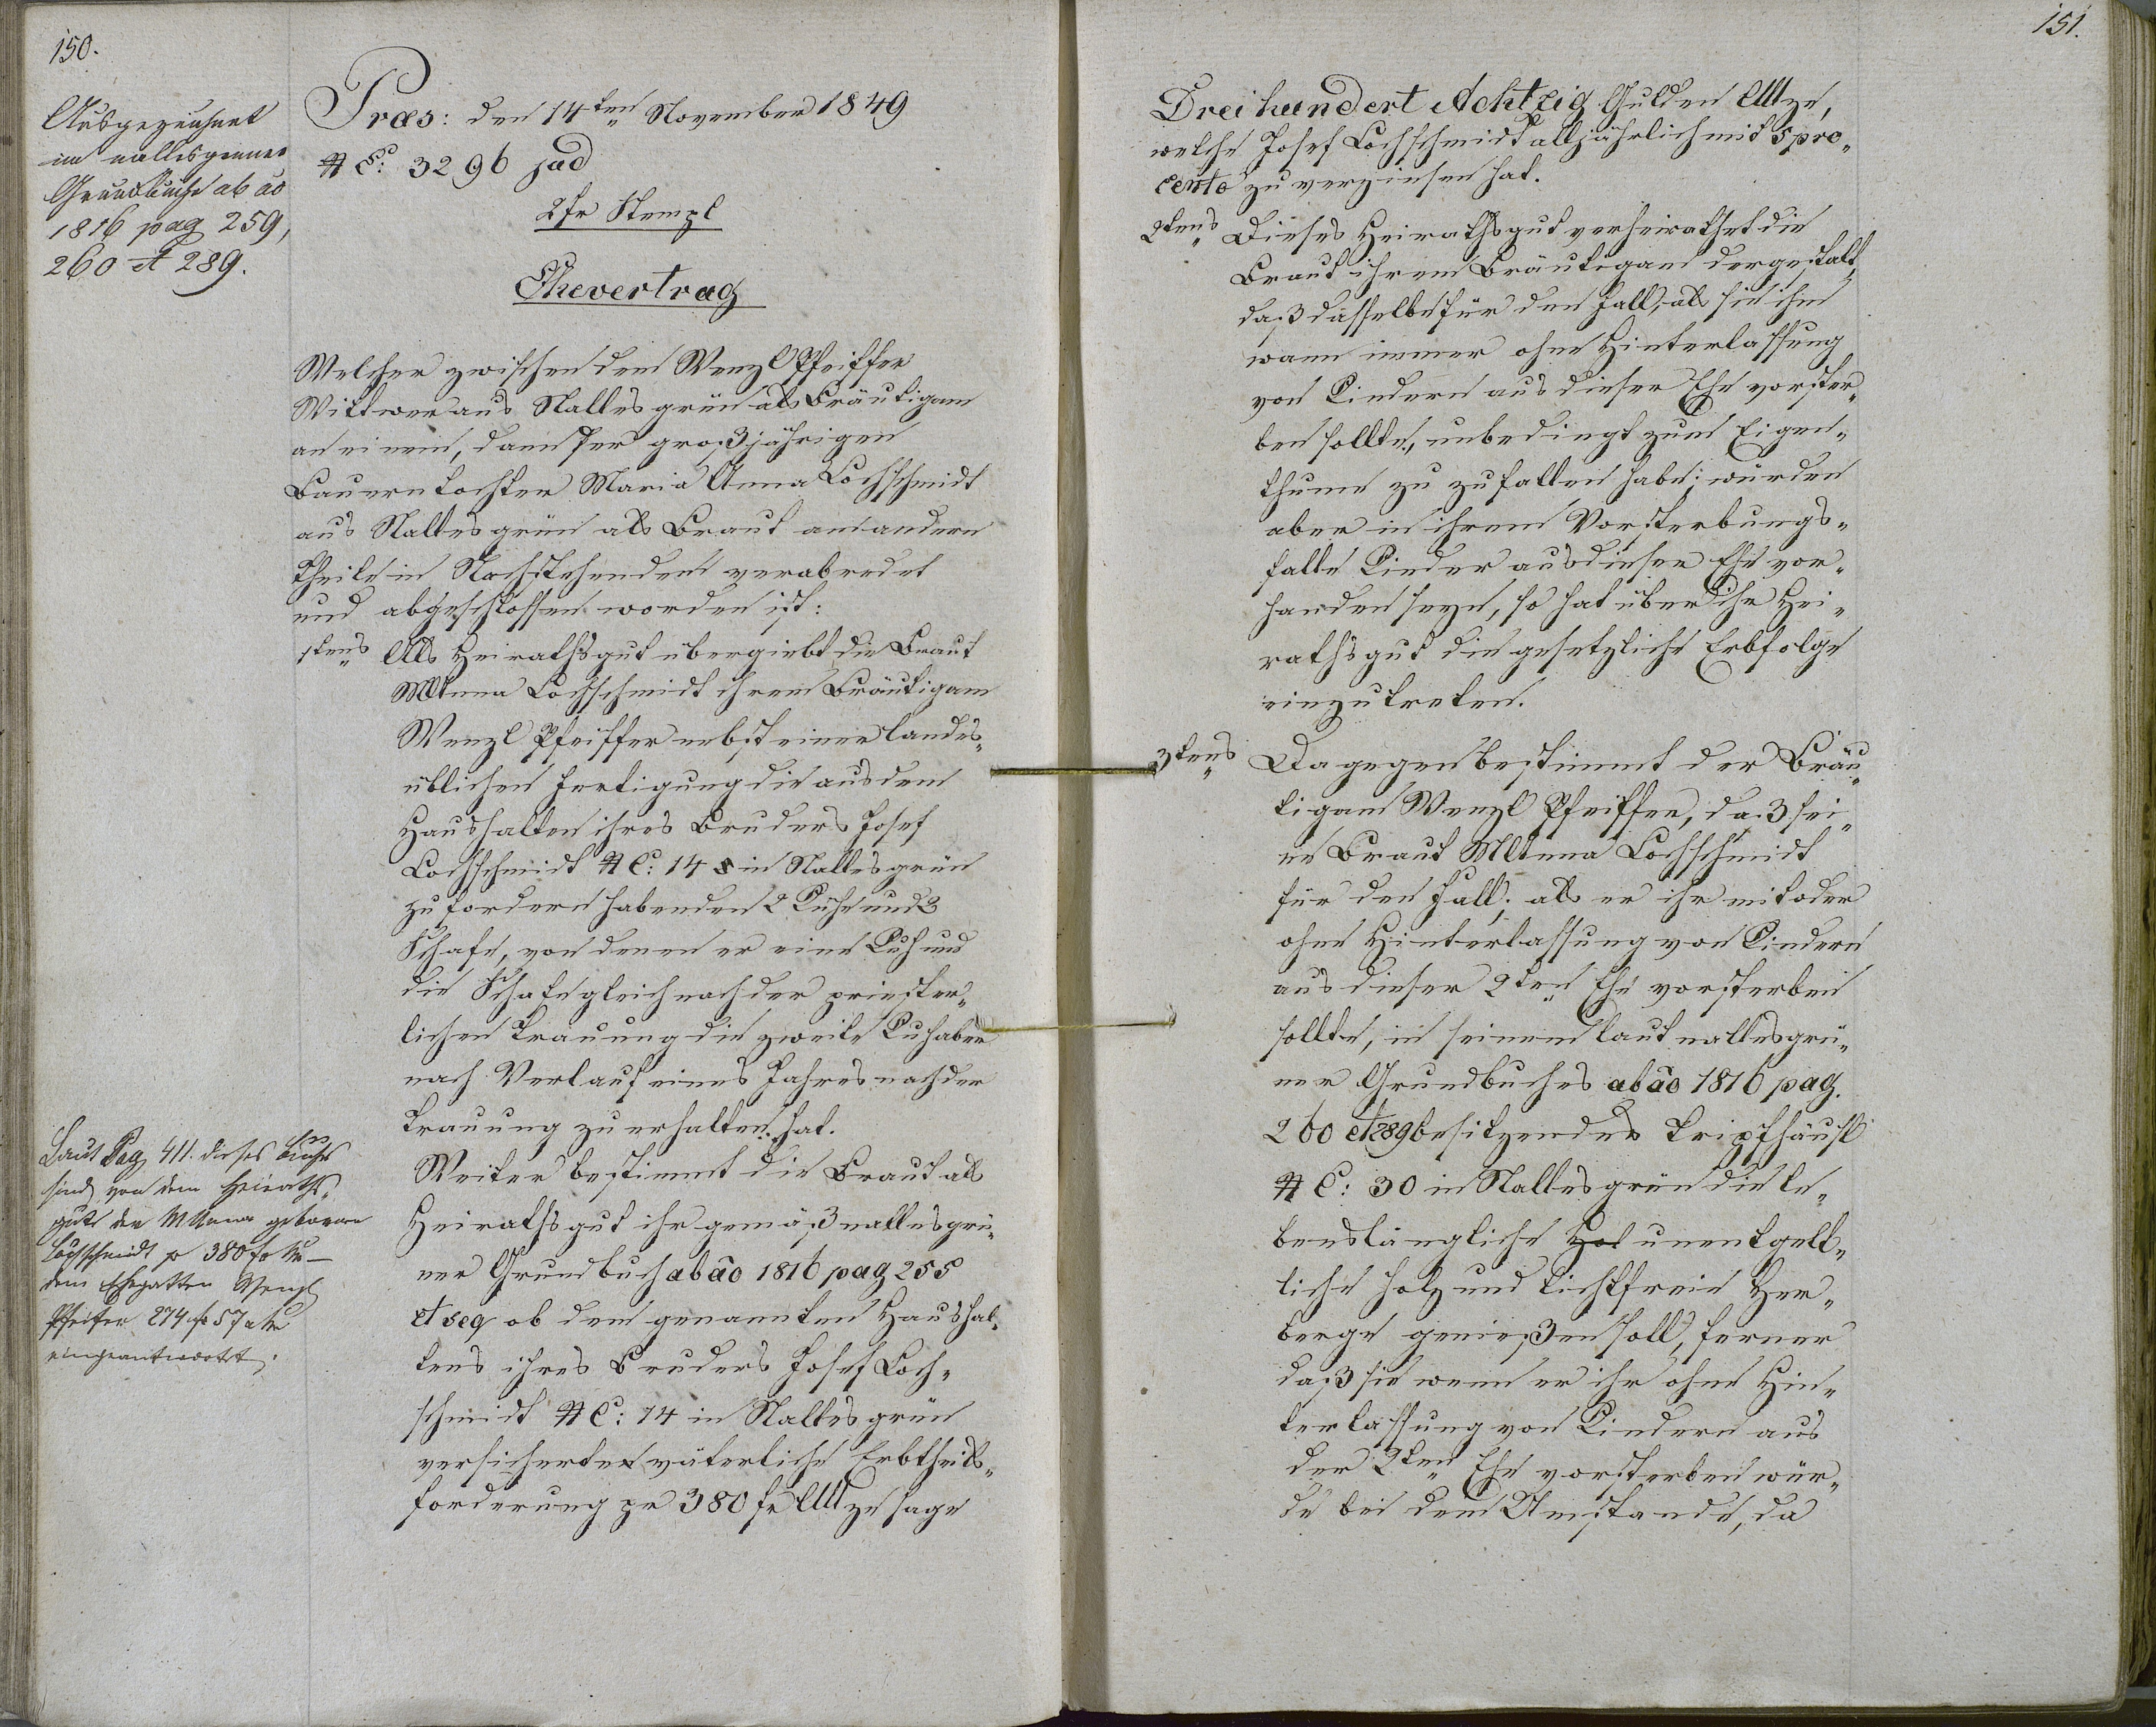 150.
Ausgezeichnet
im nallesgrüner
Grundbuche ab ao
1816 pag 259,
260 et 289.
Præs: den 14ten November 1849
N E: 3296 jud
2 fr Stempl
Ehevertrag
Welcher zwischen dem Wenzl Pfeiffer
Wittwer aus Nallesgrün als Bräutigam
an einem, dann der großjährigen
Bauerntochter Maria Anna Lochschmidt
aus Nallesgrün als Braut am andern
Theile in Nachstehendem verabredet
und abgeschlossen worden ist:
1tens Als Heirathsgut übergiebt die Braut
MAnna Lochschmidt ihrem Bräutigam
Wenzl Pfeiffer nebst einer landes„
üblichen Fertigung die aus dem
Haushalten ihres Bruders Josef
Lochschmidt N C: 14 in Nallesgrün
zu fordern habenden 2 Kühe und 3
Schafe, von denen er eine Kuh und
die Schafe gleich nach der priester„
lichen Trauung die zweite Kuh aber
nach Verlauf eines Jahres nach der
Trauung zu erhalten hat.
Weiter bestimmt die Braut als
Heirathsgut ihr gemäß nallesgrü„
ner Grundbuch ab ao 1816 pag 255
et seq ob dem genannten Haushal„
tens ihres Bruders Josef Loch„
schmidt N C: 14 in Nallesgrün
versicherte väterliche Erbtheils„
forderung pr 380 fr CMze sage
Laut Pag 411. dieses Buchs
sind von dem Heiraths„
gute der MAnna geborenen
Lochschmidt pr 380 fr
dem Ehegatten Wenzl
Pfeifer 274 fr 57
eingeantwortet.
151.
Dreihundert Achtzig Gulden CMze,
welche Josef Lochschmidt alljährlich mit 5 pro„
cento zu verzinsen hat.
2tens Dieses Heirathsgut verheirathet die
Braut ihrem Bräutigam dergestalt,
daß dasselbe für den Fall, als sie ihm
wann immer ohne Hinterlassung
von Kindern aus dieser Ehe vorster„
ben sollte, unbedingt zum Eigen„
thume zu zufallen habe; würden
aber in ihrem Vorsterbungs„
falle Kinder aus dieser Ehe vor„
handen seyn, so hat über ihr Hei„
rathsgut die gesetzliche Erbfolge
einzutreten.
3tens Dagegen bestimmt der Bräu„
tigam Wenzl Pfeiffer, daß sei„
ne Braut MAnna Lochschmidt
für den Fall, als er ihr mit oder
ohne Hinterlassung von Kindern
aus dieser 2ten Ehe vorsterben
sollte, in seinem laut nallesgrü„
ner Grundbuches ab ao 1816 pag.
260 et 289 besitzenden Tripfhäusl
N C: 30 in Nallesgrün die le„
benslängliche Hol unentgelt„
liche holz und lichtfreie Her„
berge genießen soll, ferner
daß sie wenn er ihr ohne Hin„
terlassung von Kindern aus
der 2ten Ehe vorsterben wür„
de bei dem Umstande, da